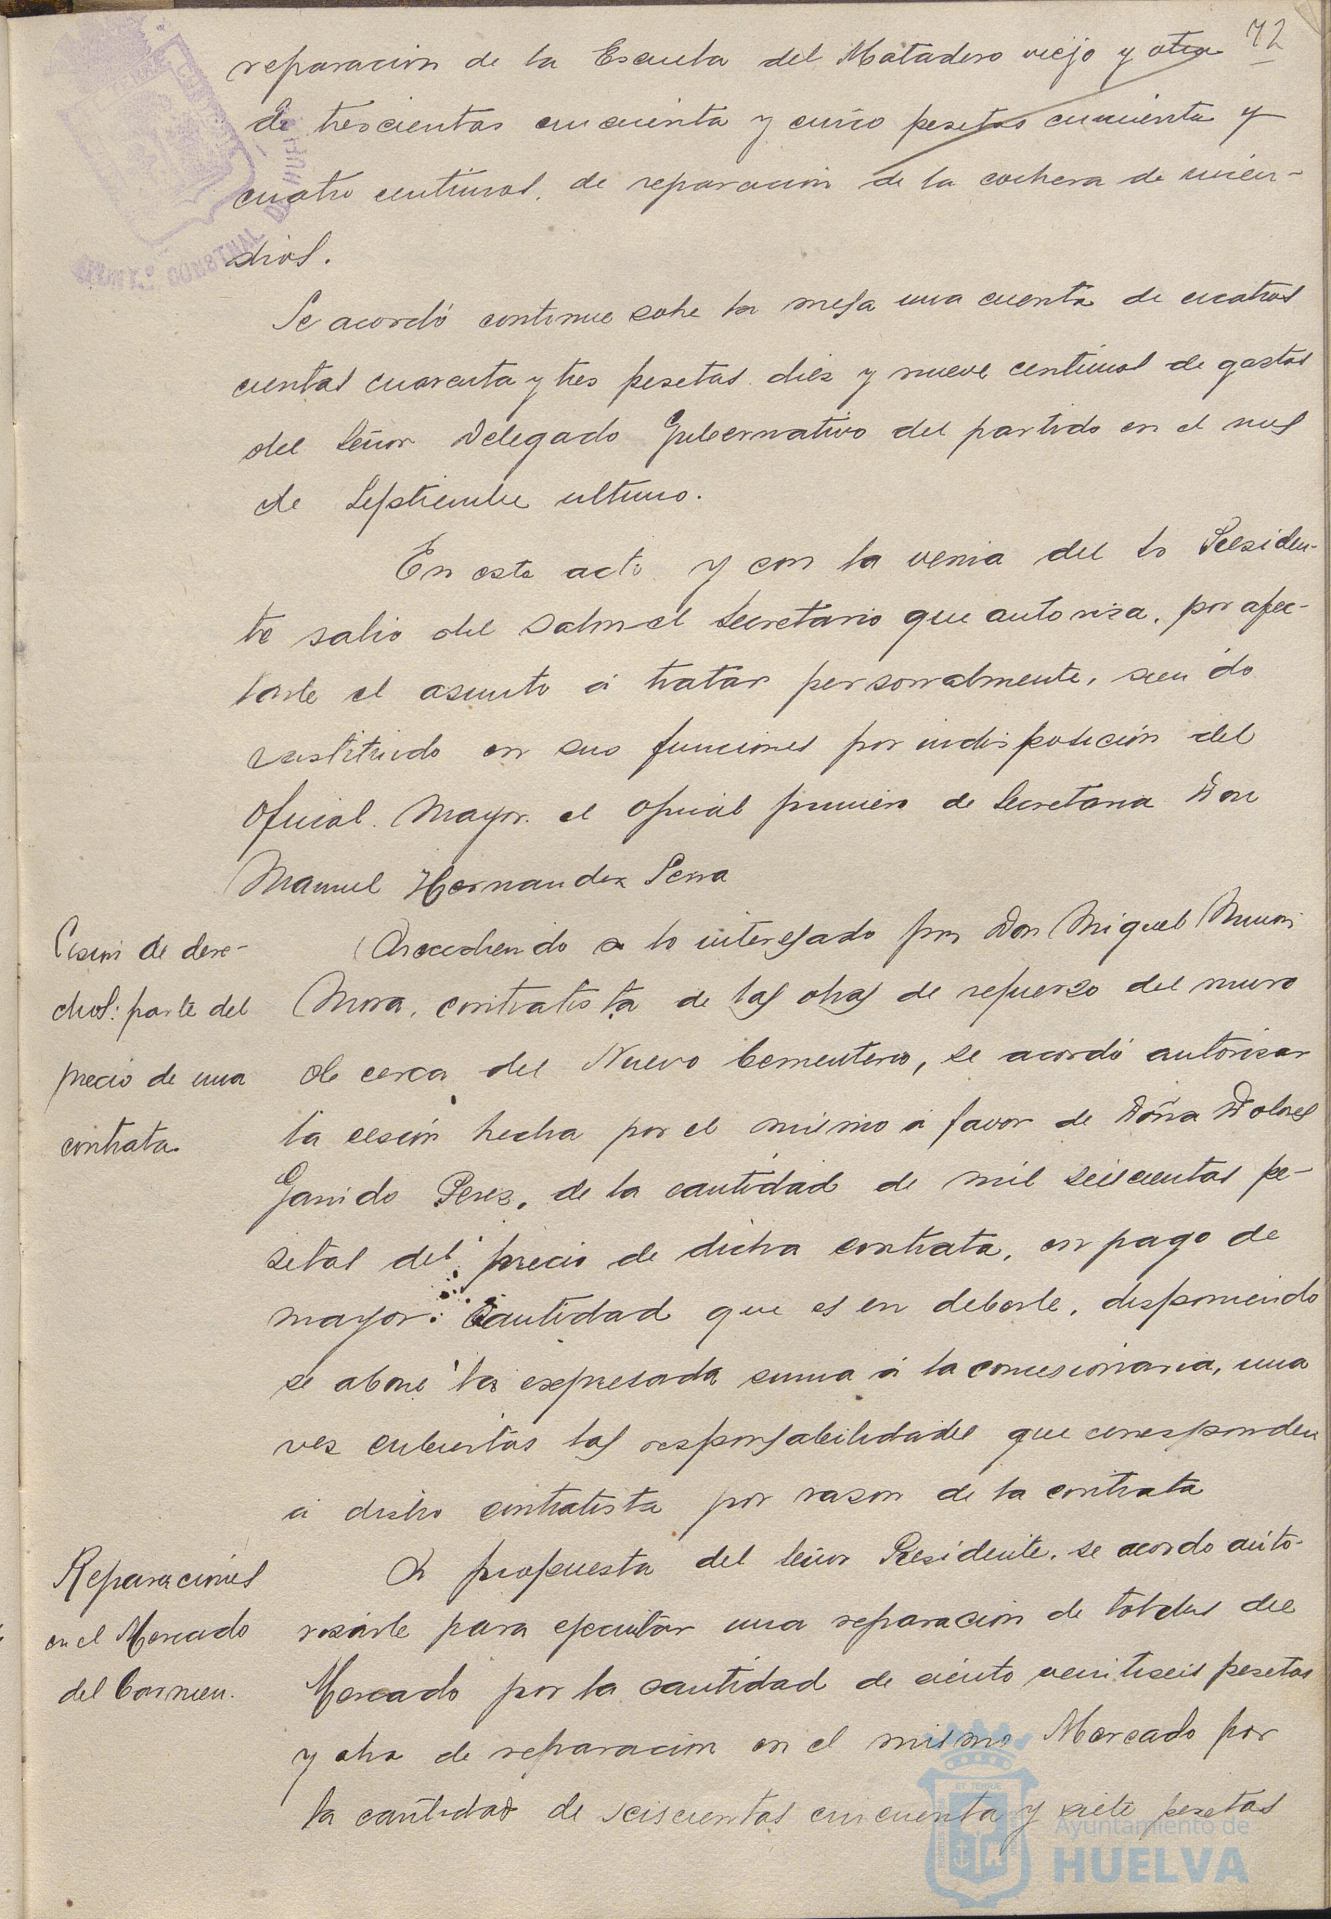 72
reparacion de la Escuela del Matadero viejo y otra
de trescientas cincuenta y cinco pesetas cincuenta y
cuatro centimos, de reparacion de la cochera de incen-
dios.
Se acordó continue sobre la mesa una cuenta de cuatros
cientas cuarenta y tres pesetas diez y nueve centimos de gastos
del Señor Delegado Gubernativo del partido en el mes
de Septiembre ultimo.
En este acto y con la venia del Sr Presiden-
te salio del Salon el Secretario que autoriza, por afec-
tarle el asunto á tratar personalmente, siendo
sustituido en sus funciones por indisposicion del
Oficial Mayor el oficial primero de Secretaria Don
Manuel Hernandez Serra
Cesion de dere-
chos: parte del
precio de una
contrata.
Accediendo a lo interesado por Don Miguel
Mora, contratista de las obras de refuerzo del muro
de cerca del Nuevo Cementerio, se acordó autorizar
la cesión hecha por el mismo á favor de Doña Dolores
Garrido Perez, de la cantidad de mil seiscientas pe-
setas del precio de dicha contrata, en pago de
mayor cantidad que es en deberle, disponiendo
se abone la expresada suma á la concesionaria, una
vez cubiertas las responsabilidades que corresponden
á dicho contratista por razon de la contrata
Reparaciones
en el Mercado
del Carmen.
A propuesta del Señor Presidente, se acordo auto-
rizarle para ejecutar una reparacion de toldos del
Mercado por la cantidad de ciento veintiseis pesetas
y otra de reparacion en el mismo Mercado por
la cantidad de seiscientas cincuenta y siete pesetas
Ayuntamiento de
HUELVA